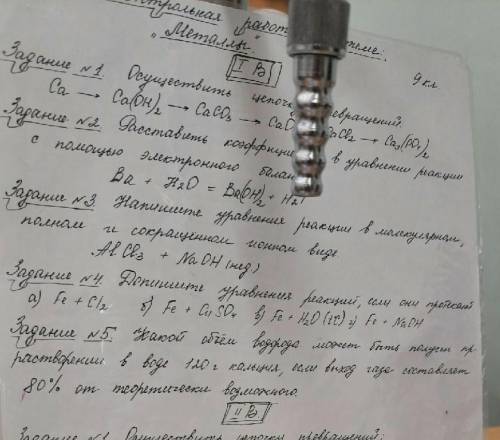 работ
"Металлы"
I В
9 кл
Задание №1. Осуществить превращений.
Ca → Ca(OH)2 → CaCO3 → CaO CaCl2 → Ca3(PO4)2
Задание №2. Расставить в уравнении реакции
с помощью электронного
Ba + H2O = Ba(OH)2 + H2↑
Задание №3. Напишите уравнения реакции в молекулярном,
полном и сокращенном ионном виде
AlCl3 + NaOH (нед)
Задание №4. Допишите уравнения реакций, если они протекают
а) Fe + Cl2 б) Fe + CuSO4 в) Fe + H2O (t°C) г) Fe + NaOH
Задание №5. Какой объём водорода может быть получен при
растворении в воде 120 г кальция, если выход газа составляет
80% от теоретически возможного.
II В
Задание №1. Осуществить цепочку превращений: